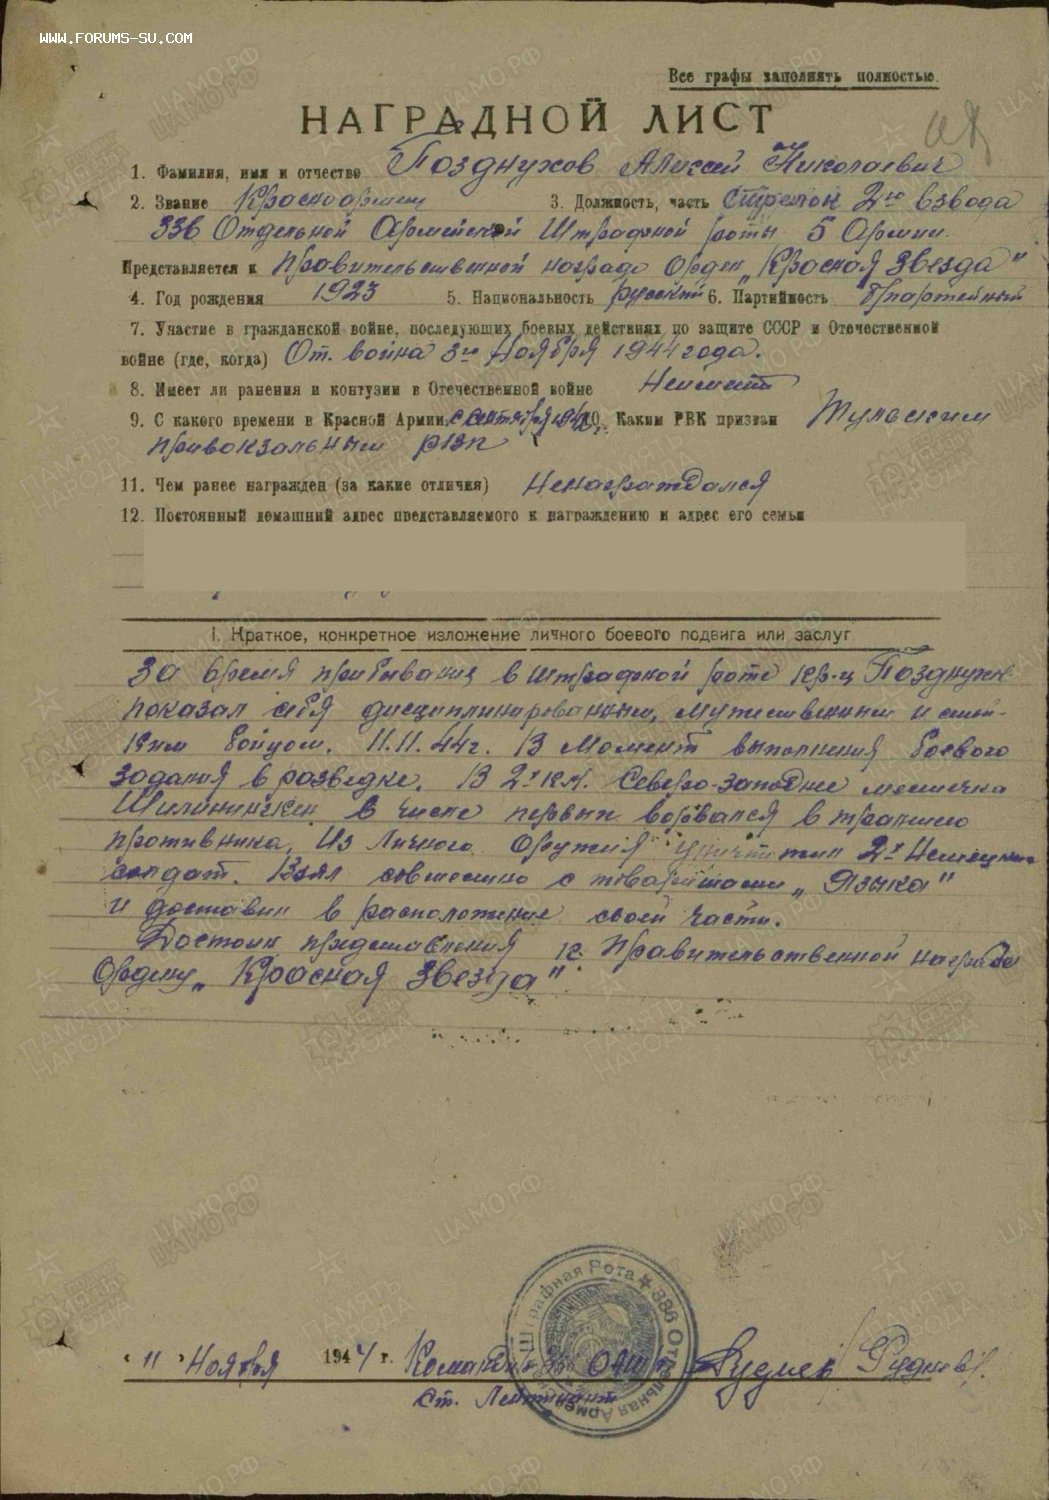 WWW.FORUMS-SU.COM
Все графы заполнять полностью.
НАГРАДНОЙ ЛИСТ
1. Фамилия, имя и отчество Позднухов Алексей Николаевич
2. Звание Красноармеец 3. Должность, часть стрелок 2го взвода
336 Отдельной Армейской Штрафной роты 5 Армии.
Представляется к правительственной награде орден „Красная Звезда"
4. Год рождения 1923 5. Национальность русский 6. Партийность б/партейный
7. Участие в гражданской войне, последующих боевых действиях по защите СССР и Отечественной
войне (где, когда) От. война 3го Ноября 1944 года.
8. Имеет ли ранения и контузии в Отечественной войне Неимеет
9. С какого времени в Красной Армии с сентября 10. Каким РВК призван Тульским
привокзальным рвк
11. Чем ранее награжден (за какие отличия) Ненаграждался
12. Постоянный домашний адрес представляемого к награждению и адрес его семьи
I. Краткое, конкретное изложение личного боевого подвига или заслуг
За время прибывания в штрафной роте кр-ц Позднухов
показал себя дисциплинированным, мужественным и стой-
ким бойцом. 11.11.44г. В момент выполнения боевого
задания в разведке. В 2х км. Северо-западнее местечка
в числе первых ворвался в траншею
противника, Из Личного Оружия уничтожил 2х Немецких
солдат. Взял совместно с товарищами „Языка"
и доставил в расположение своей части.
Достоин представления к Правительственной награде
Ордену „Красная Звезда".
" 11 " Ноября 1944 г. Командир ОАШР Руднев
Ст. Лейтенант
Штрафная Рота ★ 336 Отдельная Армейская
ЦАМО РФ
ПАМЯТЬ НАРОДА